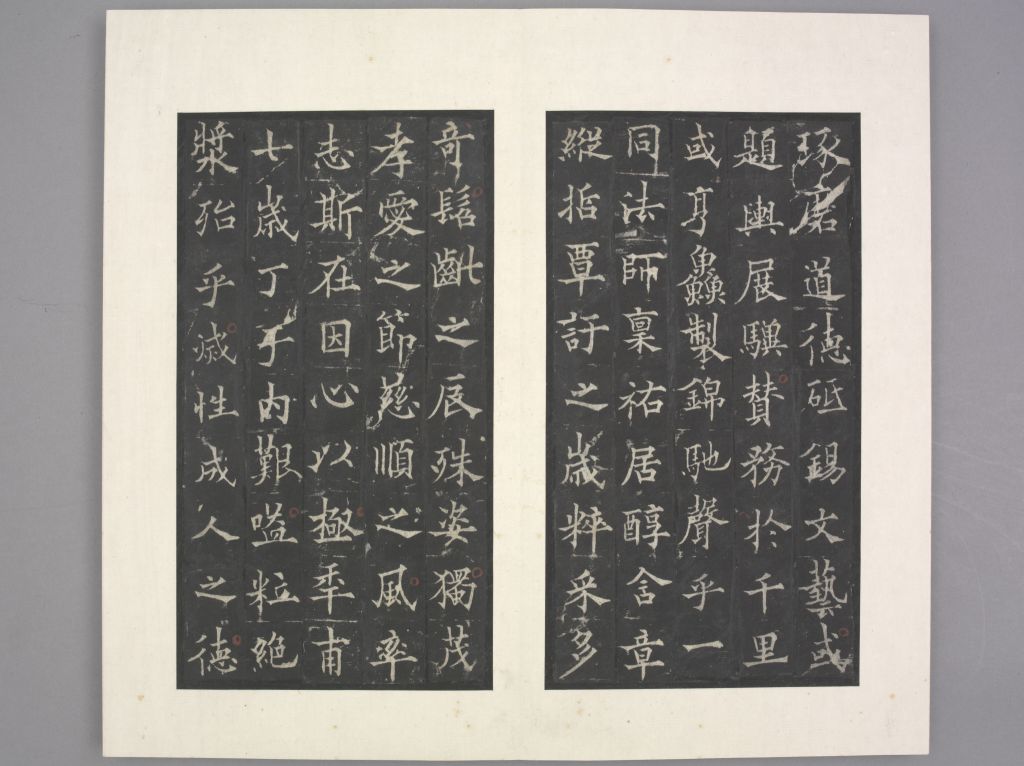 琢磨道德砥錫文藝或
題輿展驥贊務於千里
或亨鱻製錦馳聲乎一
同法師稟祐居醇含章
縱哲覃訏之歲粹采多
奇髫齔之辰殊姿獨茂
孝愛之節慈順之風率
志斯在因心以極年甫
七歲丁于內艱嗌粒絕
漿殆乎滅性成人之德